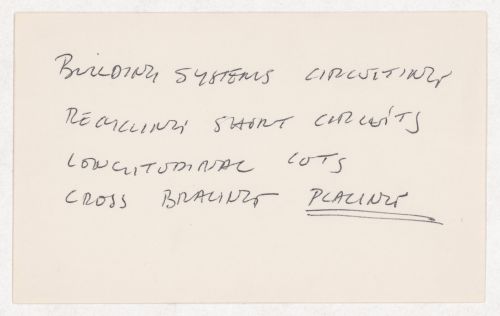 BUILDING SYSTEMS CIRCUITING
RECYCLING SHORT CIRCUITS
LONGITUDINAL CUTS
CROSS BRACING PLACING